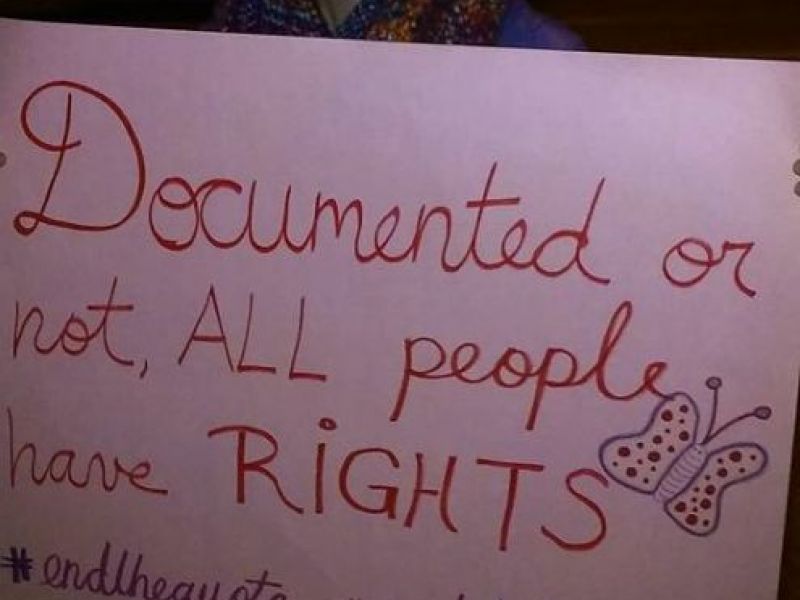 Documented or
not, ALL people
have RiGHTS
#endthequota